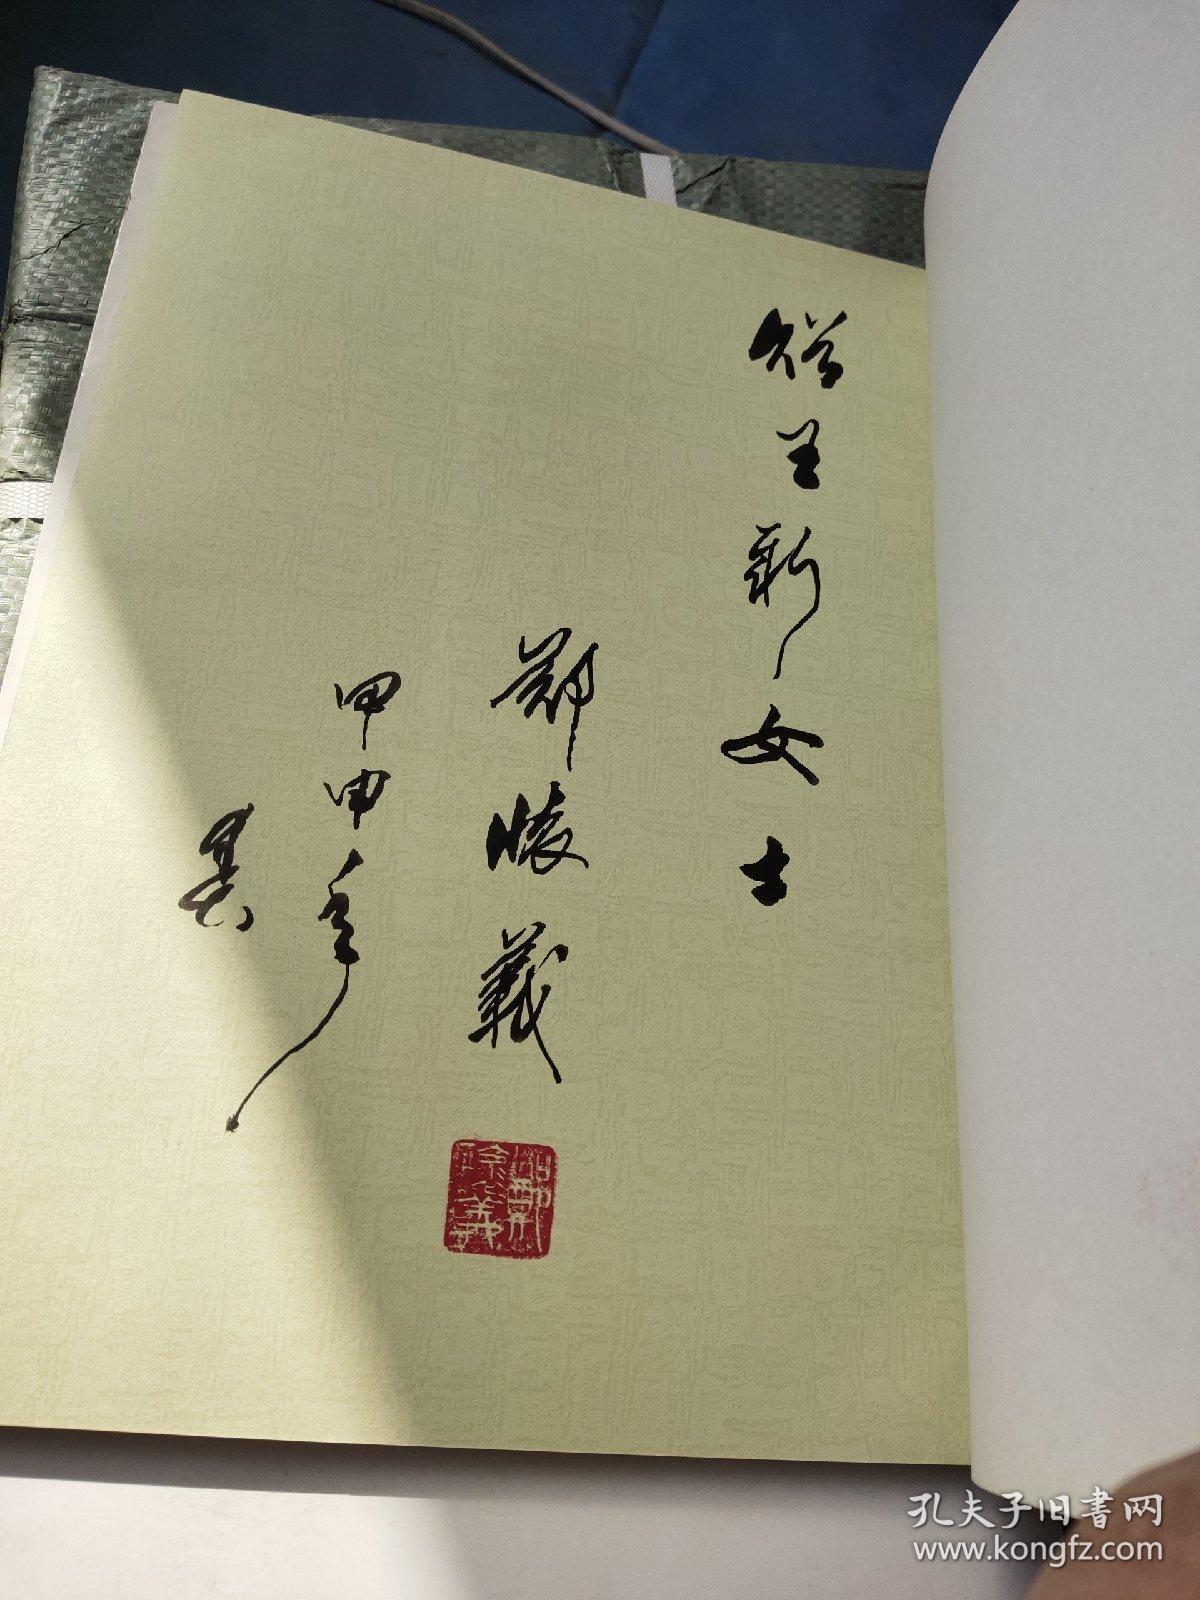 赠王新女士
郑怀义
甲申年
夏
郑怀义
孔夫子旧书网
www.kongfz.com